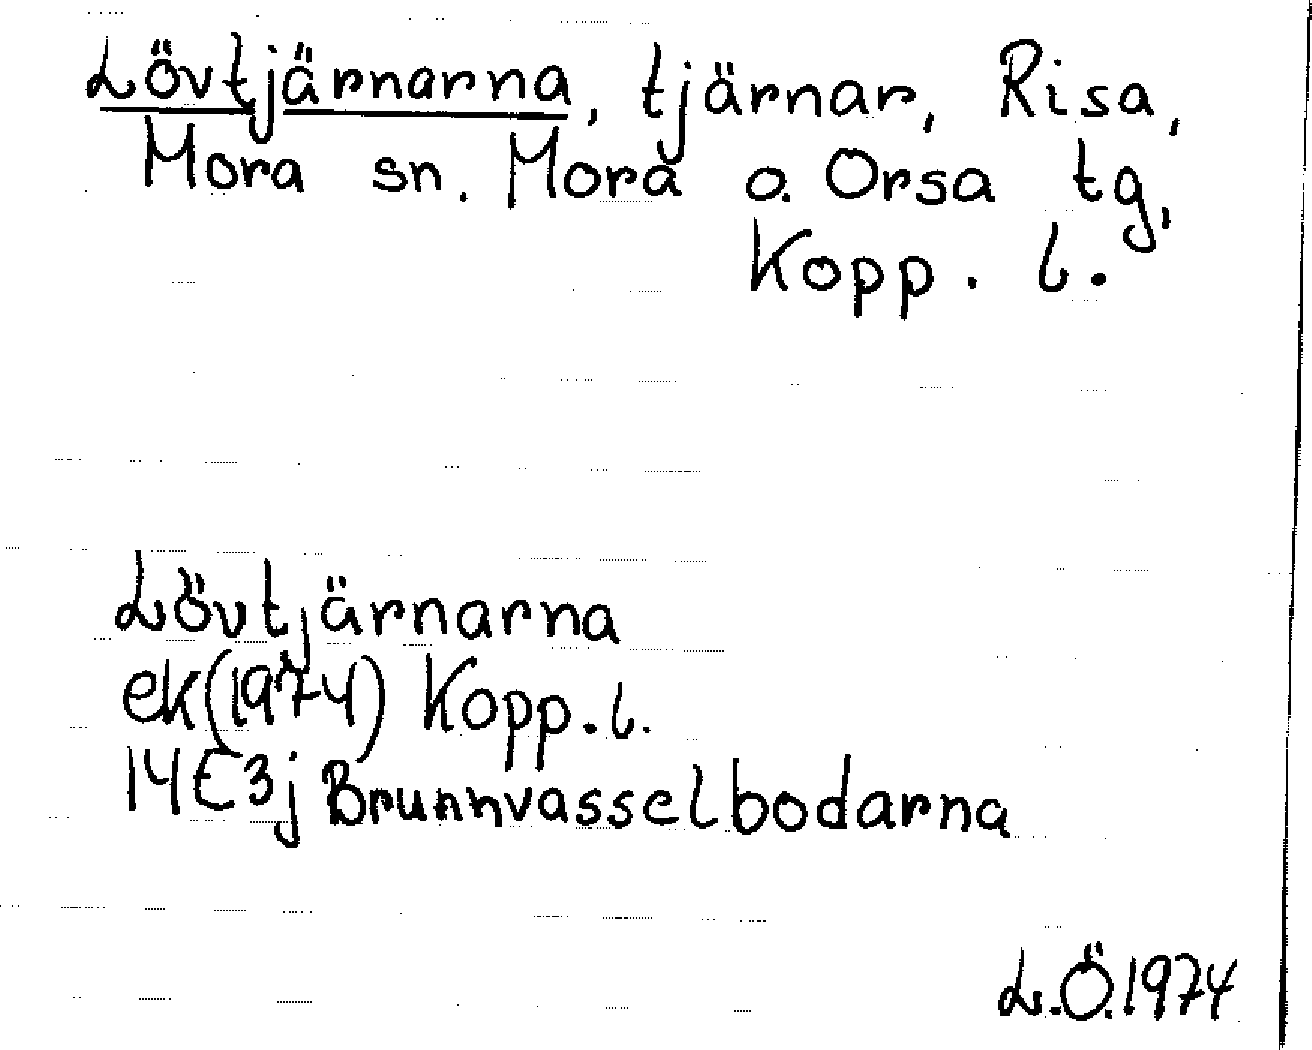 Lövtjärnarna, tjärnar, Risa,
Mora sn. Mora o. Orsa tg,
Kopp. l.
Lövtjärnarna
ek(1974) Kopp. l.
14E3j Brunnvasselbodarna
L.Ö.1974